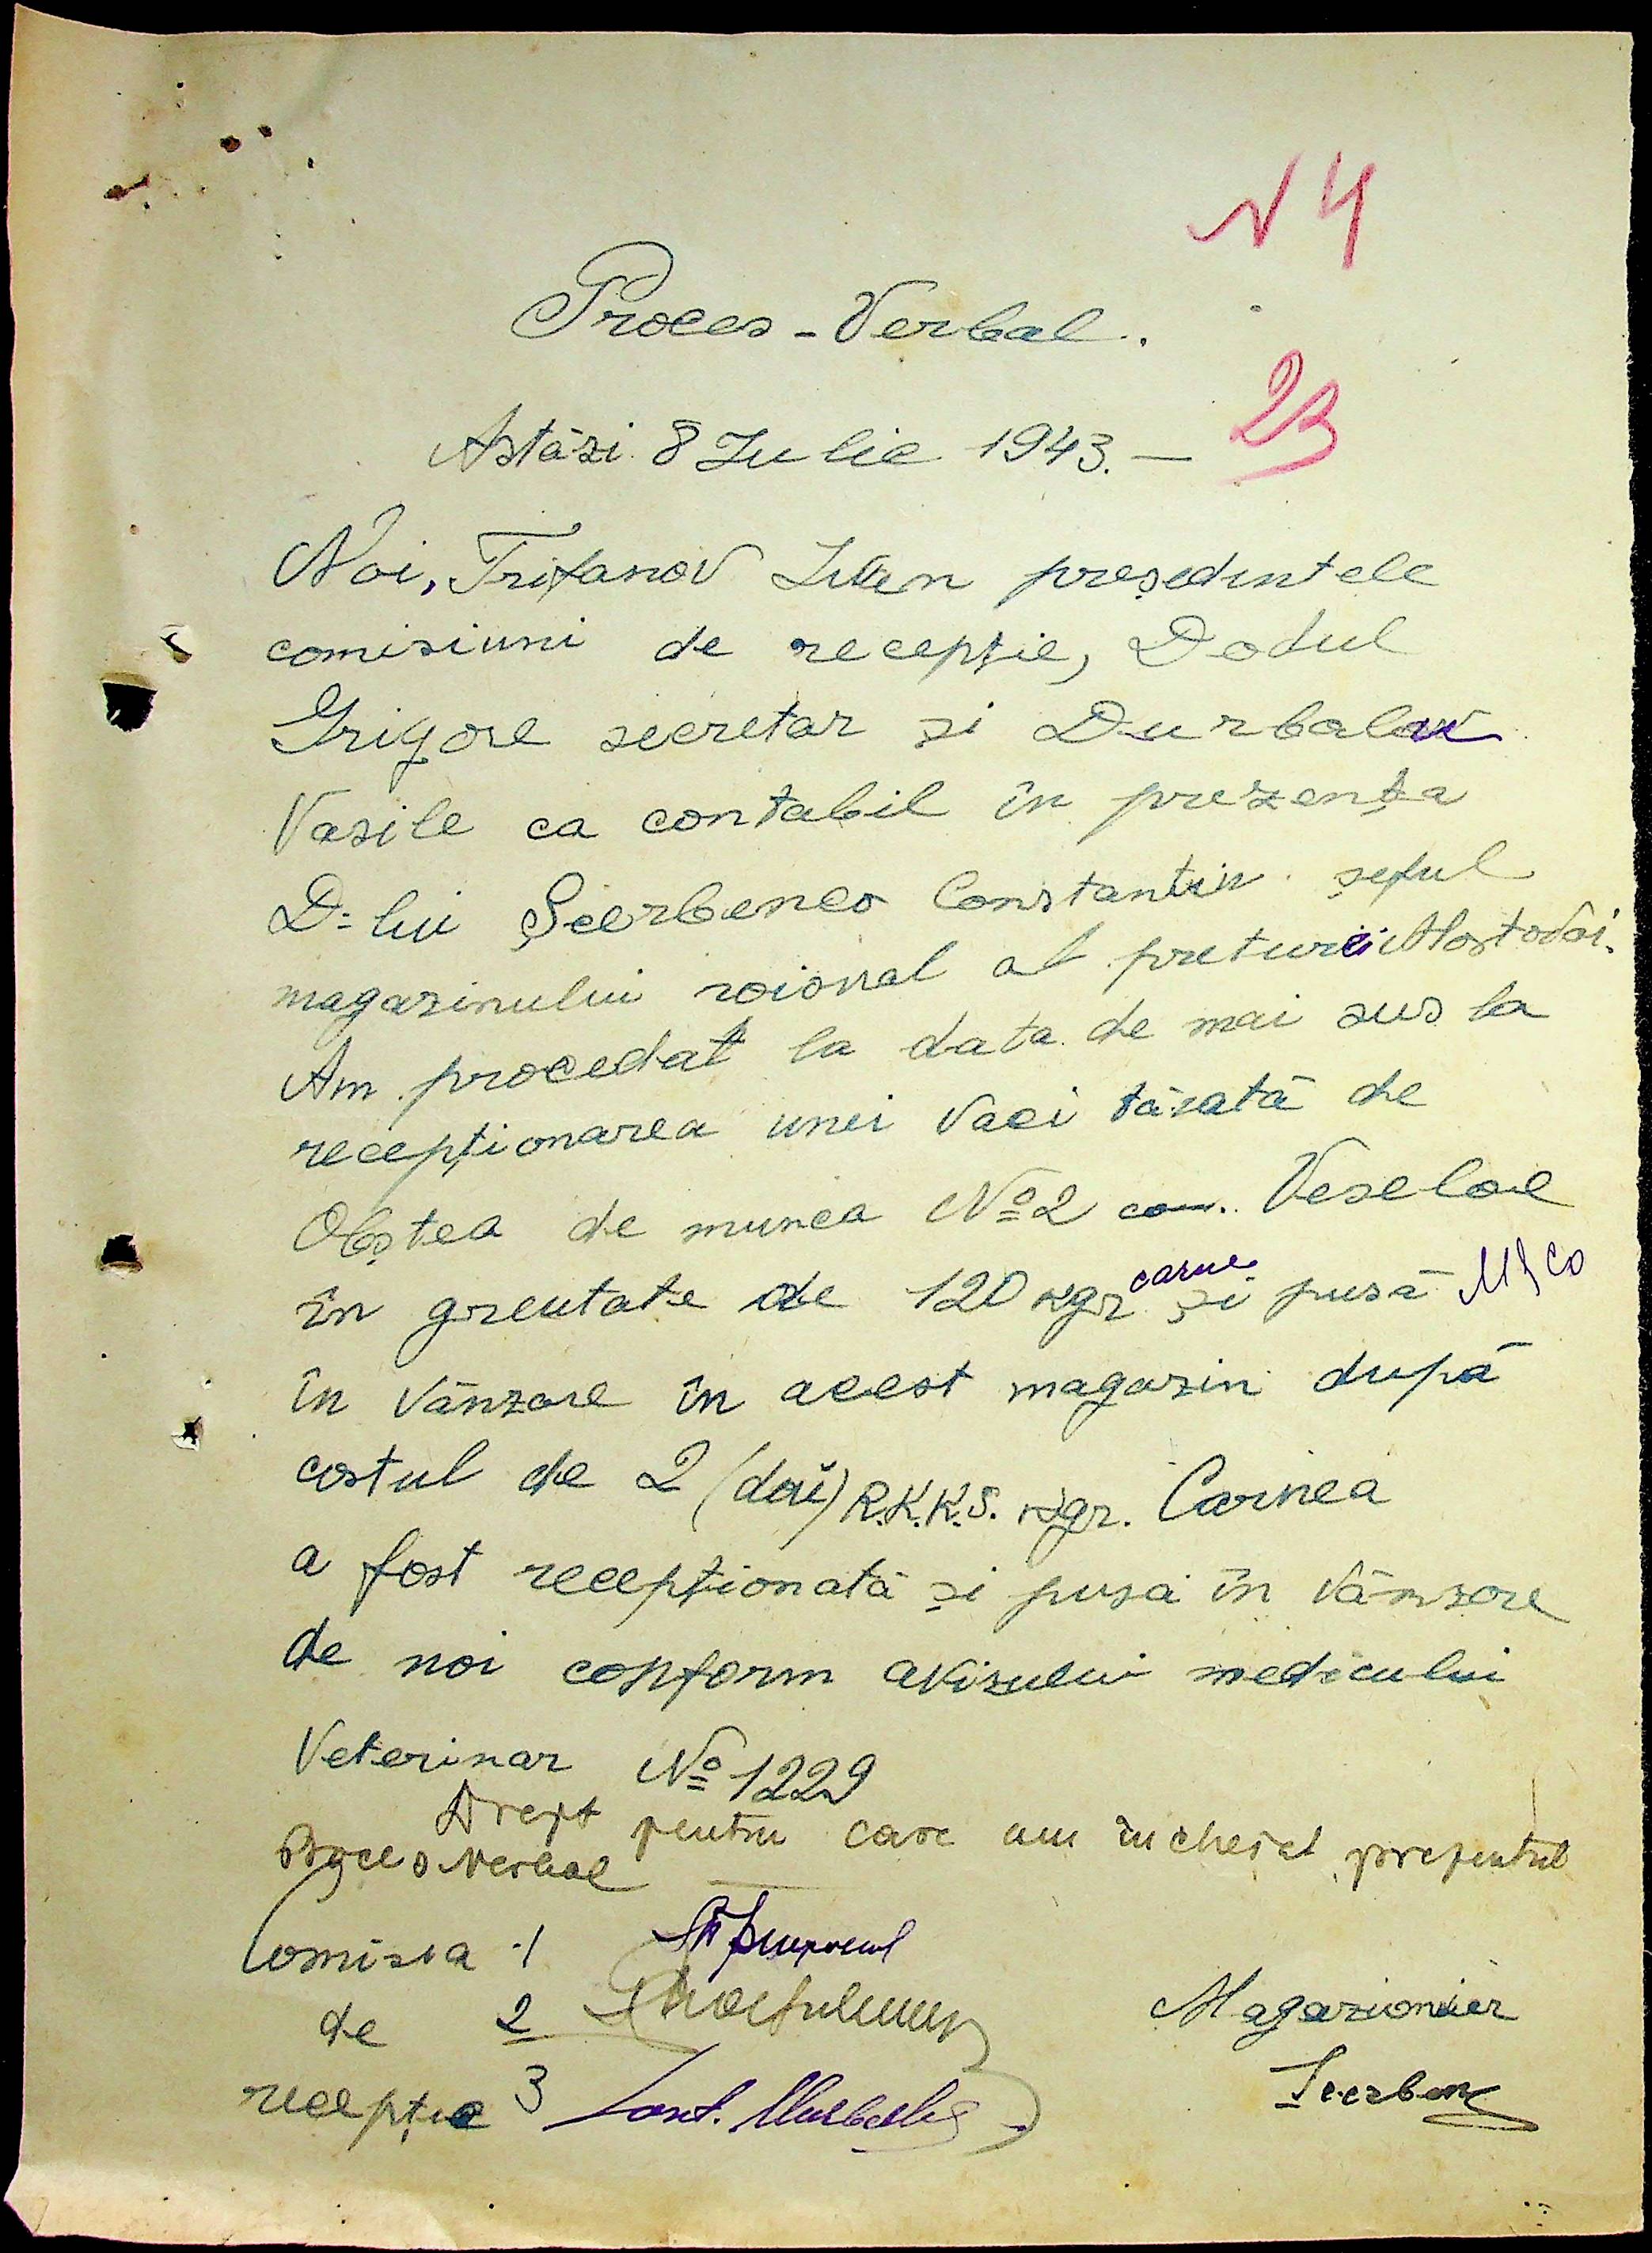 N 4
Proces-Verbal.
Astăzi 8 Iulie 1943.—
23
Noi, Trifanov preşedintele
comisiuni de recepţie, Dodul
Grigore secretar şi Durbalov
Vasile ca contabil în prezenţa
D-lui Şcerbenco Constantin şeful
magazinului roional al preturii Mostovoi.
Am procedat la data de mai sus la
recepţionarea unei vaci tăiată de
Obştea de munca No 2 com. Veseloe
în greutate de 120 kgr carne şi pusă
în vânzare în acest magazin după
costul de 2 (doi) R.K.K.S. kgr. Carnea
a fost recepţionată şi pusă în vânzare
de noi conform avizului medicului
Veterinar No 1229
Drept pentru care am încheiat prezentul
Proces Verbal
Comisia 1
de 2
recepţie 3 Cont.
Magazioner
Şcerben